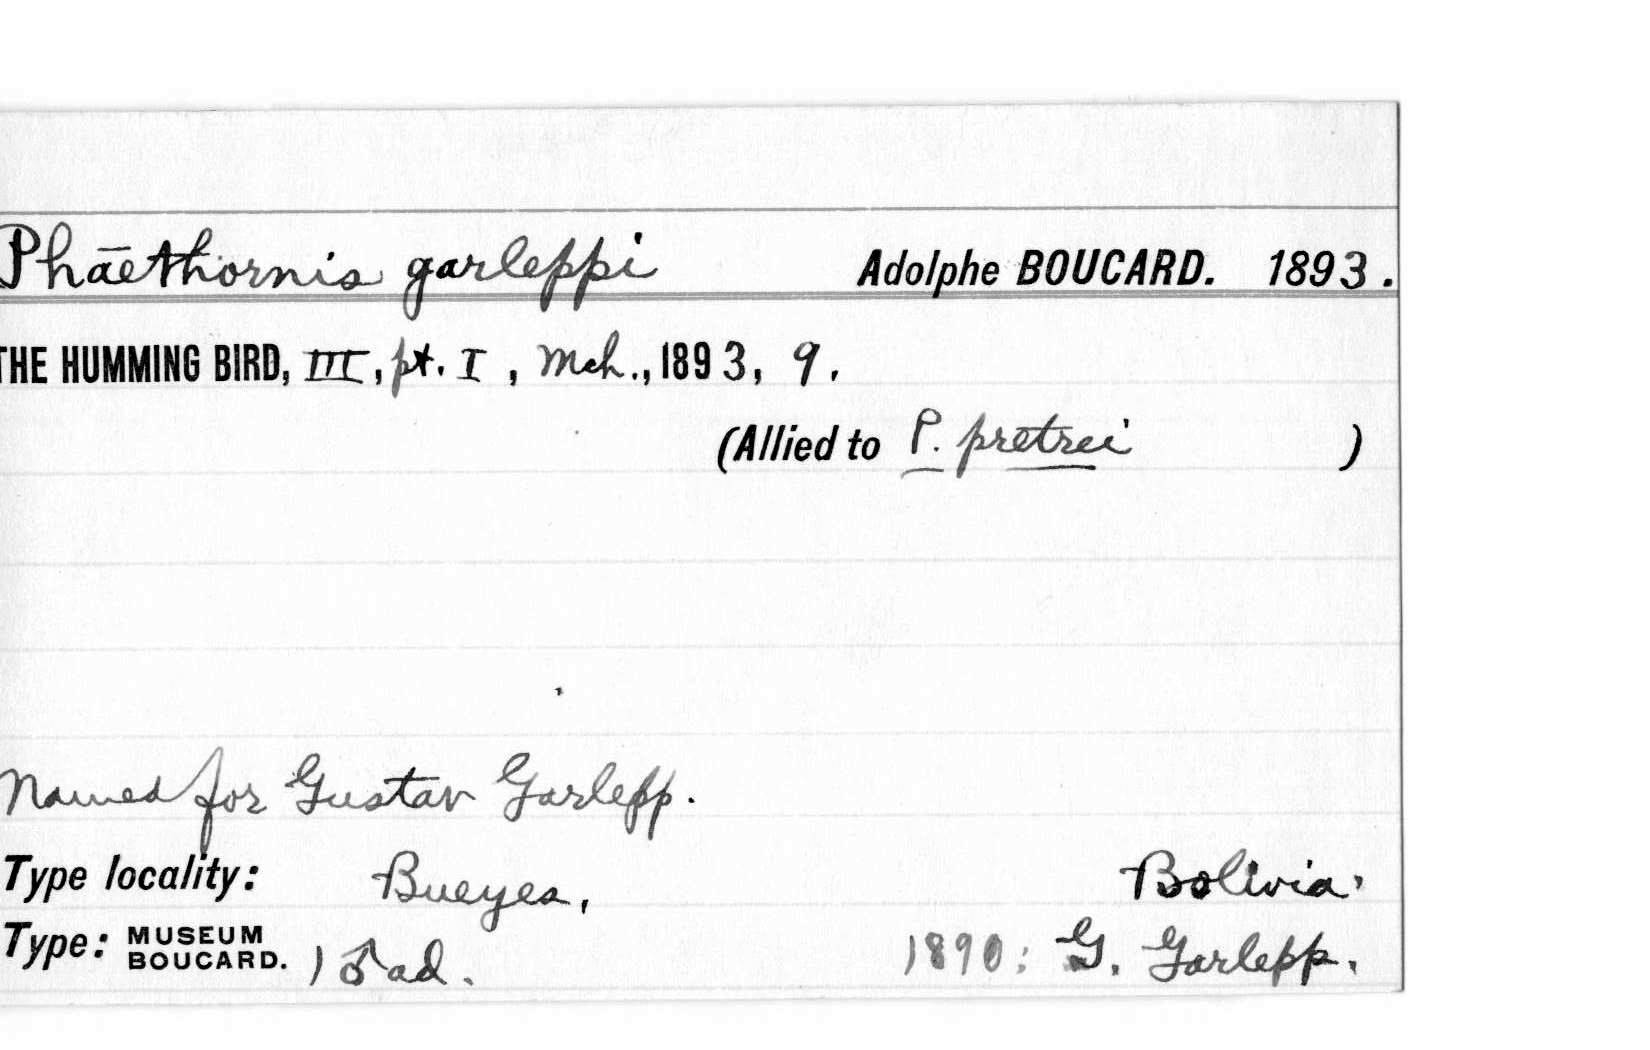 Phāethornis garleppi Adolphe BOUCARD. 1893.
THE HUMMING BIRD, III, pt. I, Mch., 1893, 9.
(Allied to P. pretrei )
Named for Gustav Garlepp.
Type locality: Bueyes, Bolivia,
Type: MUSEUM BOUCARD. 1 ♂ ad. 1890: G. Garlepp.